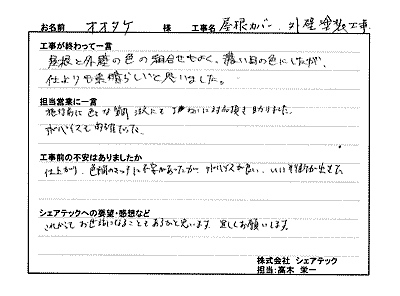 お名前 オオタケ 様 工事名 屋根カバー、外壁塗装工事
工事が終わって一言
屋根と外壁の色の組合せもよく、濃い目の色にしたが、
仕上りも素晴らしいと思いました。
担当営業に一言
ていねいに対応頂き助かりました。
アドバイスも
工事前の不安はありましたか
仕上がり、色調のマッチに不安があったが アドバイスが良い、
シェアテックへの要望・感想など
これからもお世話になることもあるかと思います 宜しくお願いします。
株式会社 シェアテック
担当:高木 栄一